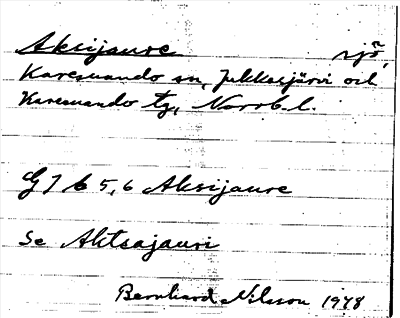 Aksijaure sjö,
Karesuando sn, Jukkasjärvi och
Karesuando tg, Norrb. l.
G J b 5,6 Aksijaure
Se Aktsajauri
Bernhard Nilsson 1978